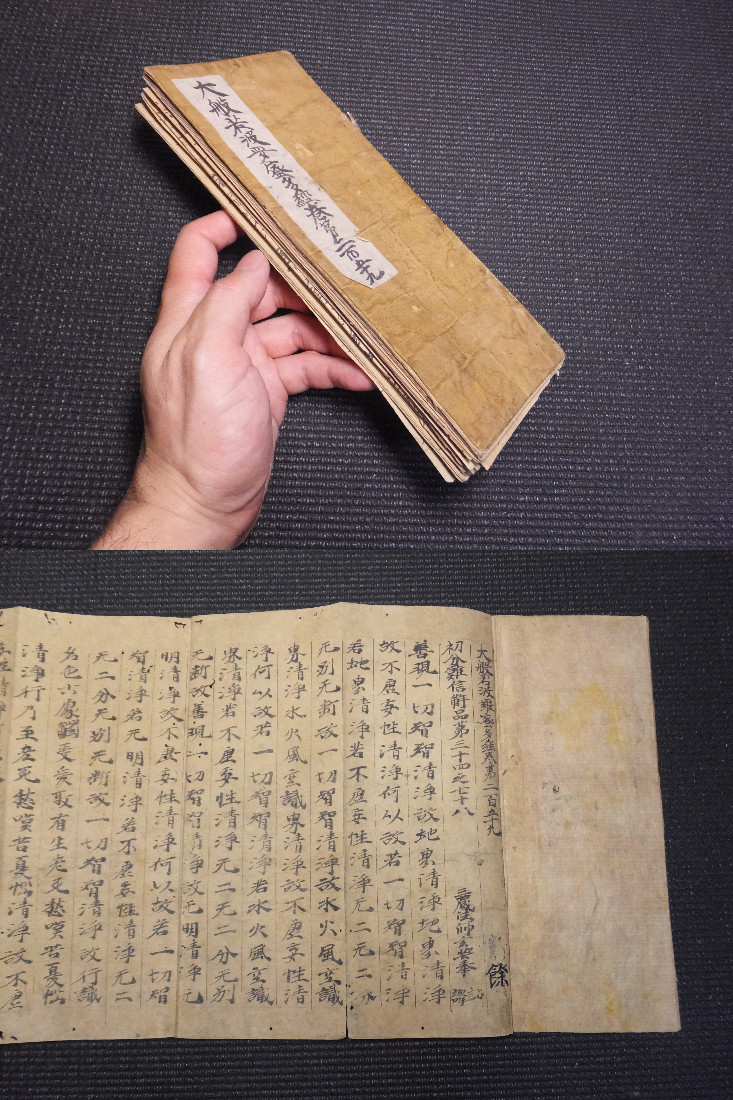 大般若波羅蜜多經卷第二百五十九
大般若波羅蜜多經卷第二百五十九
初分難信解品第三十四之七十八 三藏法師玄奘奉 詔譯
餘
善現一切智智清淨故地界清淨地界清淨
故不虛妄性清淨何以故若一切智智清淨
若地界清淨若不虛妄性清淨无二无二分
无別无斷故一切智智清淨故水火風空識
界清淨水火風空識界清淨故不虛妄性清
淨何以故若一切智智清淨若水火風空識
界清淨若不虛妄性清淨无二无二分无別
无斷故善現一切智智清淨故无明清淨无
明清淨故不虛妄性清淨何以故若一切智
智清淨若无明清淨若不虛妄性清淨无二
无二分无別无斷故一切智智清淨故行識
名色六處觸受愛取有生老死愁嘆苦憂惱
清淨行乃至老死愁嘆苦憂惱清淨故不虛